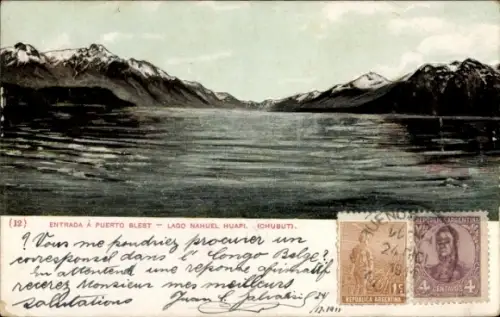 (12) ENTRADA Á PUERTO BLEST — LAGO NAHUEL HUAPI. (CHUBUT).
? Vous me pondriez procurer un
correspondant dans le Congo Belge?
En attendant une réponse
recevez Monsieur mes meilleurs
salutations
Juan C.
BUENOS
24
REPUBLICA ARGENTINA
1c
REPUBLICA ARGENTINA
4 CENTAVOS 4